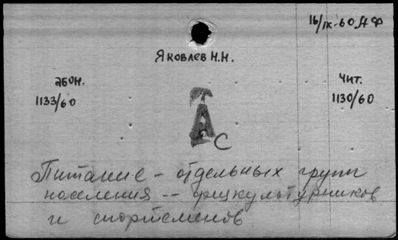 16/IX-60 АФ
Яковлев Н.Н.
абон.
1133/60
Чит.
1130/60
Т
А
2С
Питание - отдельных групп
населения -- физкультурников
и спортсменов